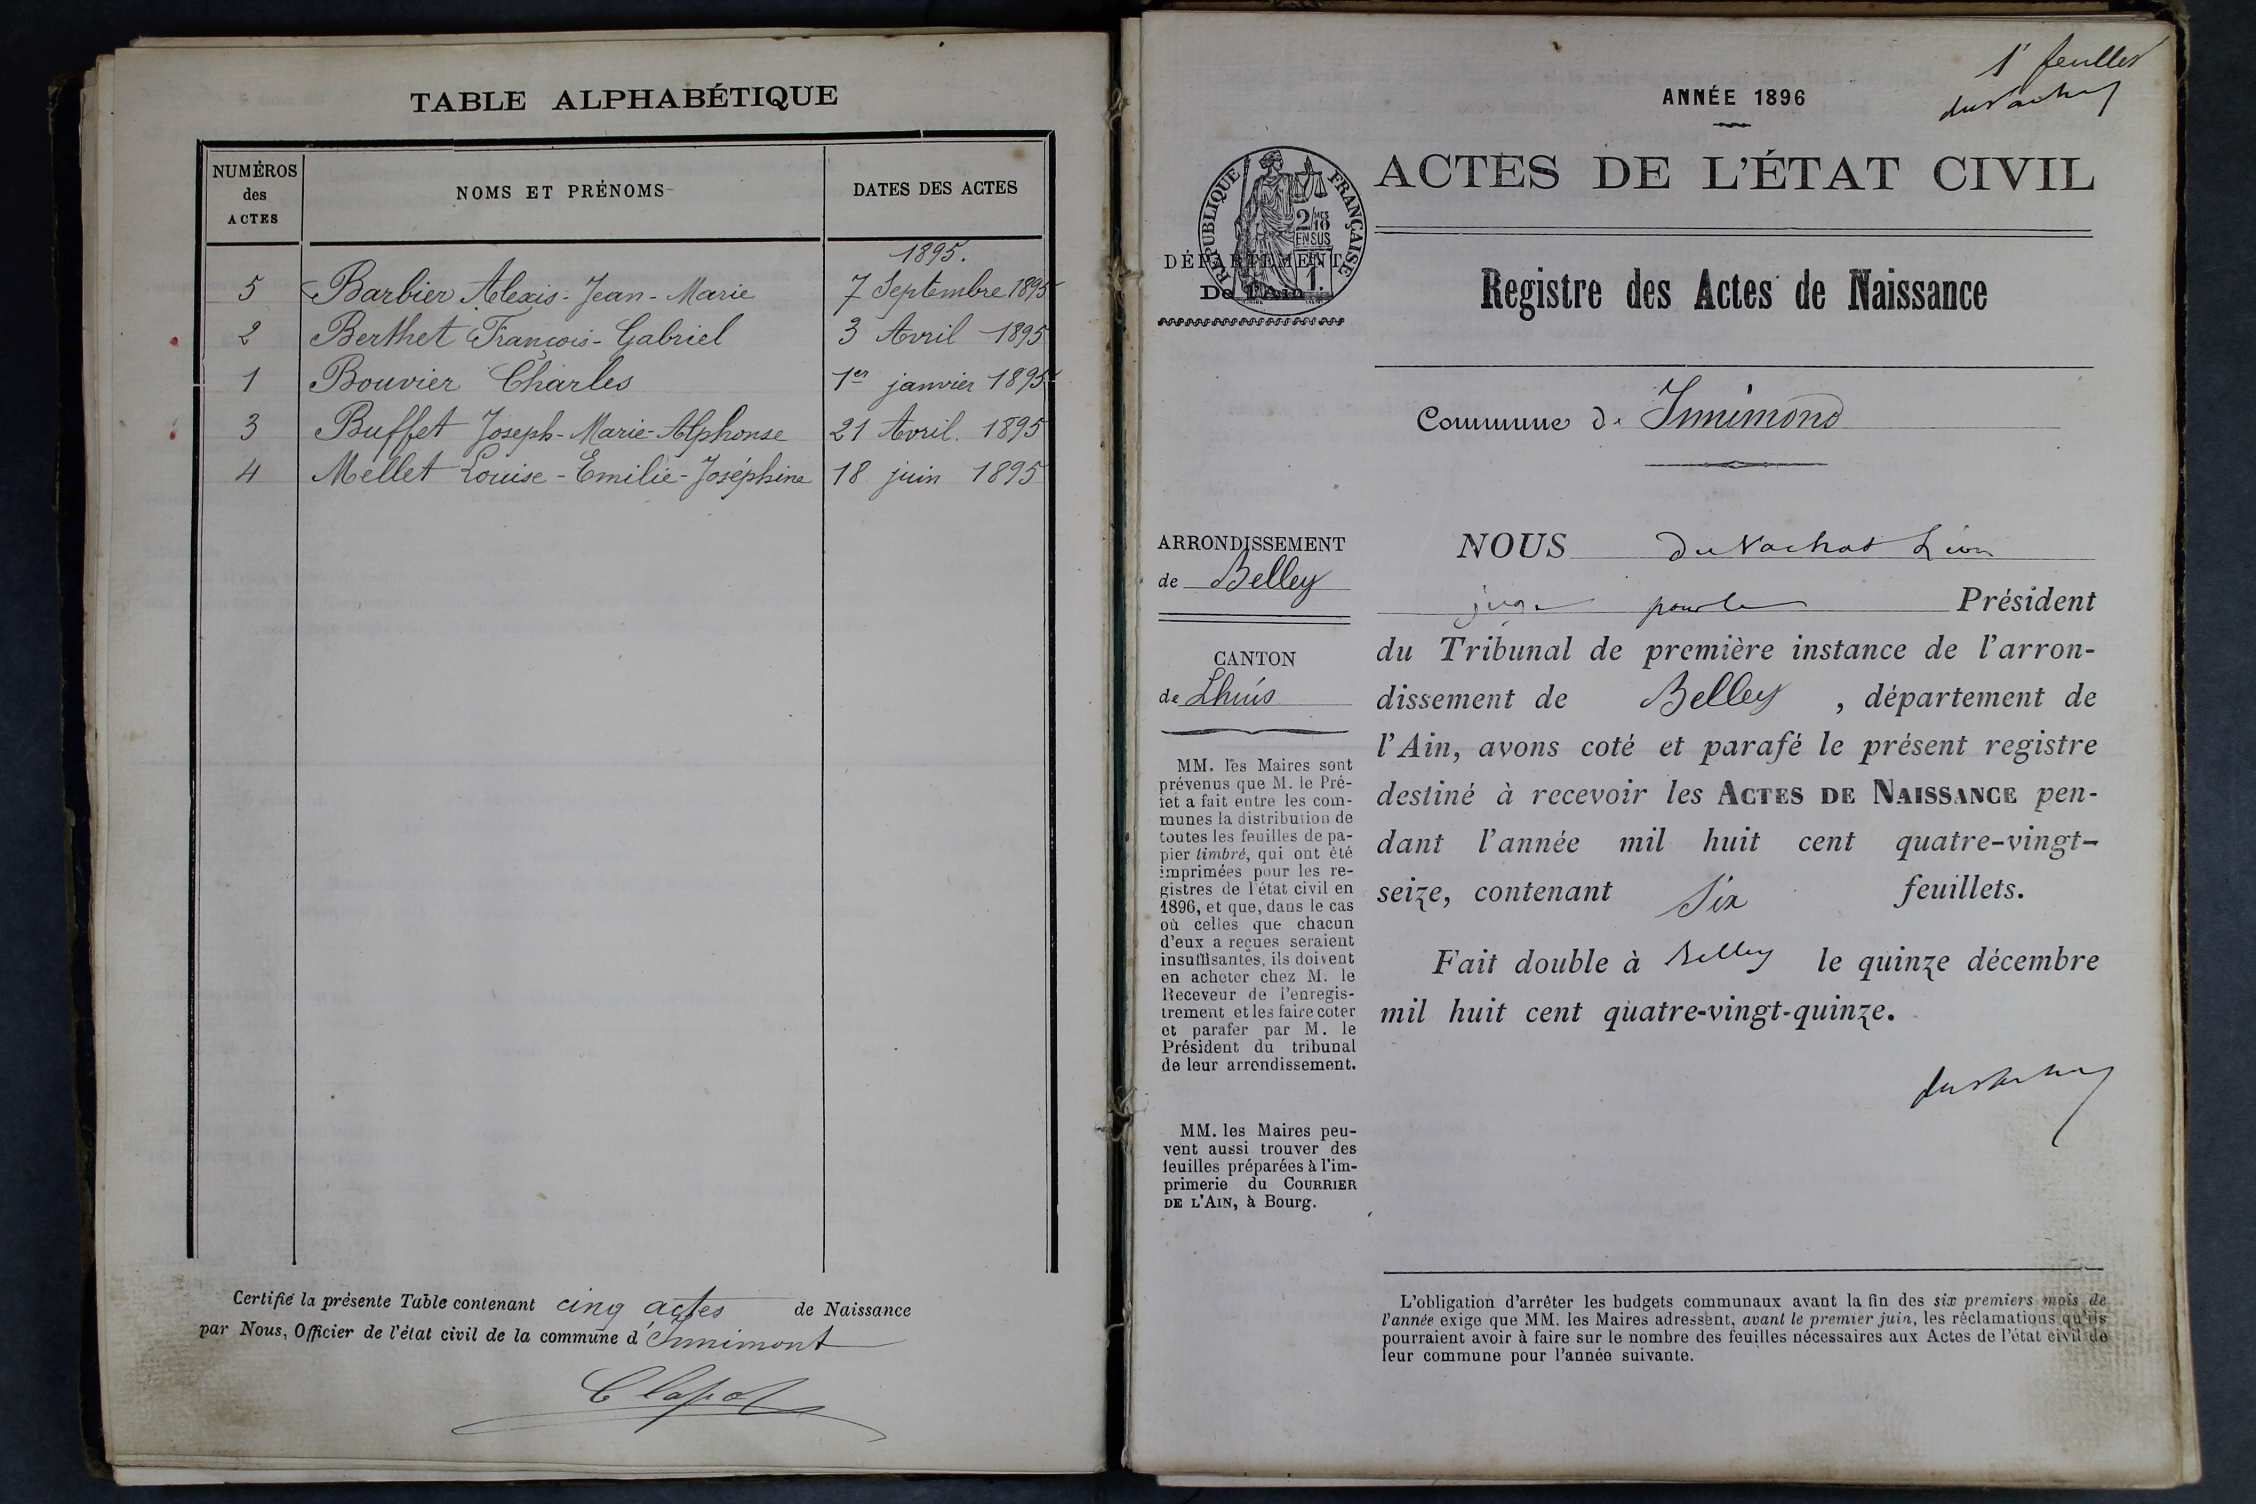 TABLE ALPHABÉTIQUE
NUMÉROS
des
ACTES
NOMS ET PRÉNOMS
DATES DES ACTES
1895.
5 Barbier Alexis-Jean-Marie 7 Septembre 1895
2 Berthet François-Gabriel 3 Avril 1895
1 Bouvier Charles 1er janvier 1895
3 Buffet Joseph-Marie-Alphonse 21 Avril. 1895
4 Mellet Louise-Emilie-Joséphine 18 juin 1895
Certifié la présente Table contenant cinq actes de Naissance
par Nous, Officier de l'état civil de la commune d'Innimont
1r feuillet
ANNÉE 1896
ACTES DE L'ÉTAT CIVIL
RÉPUBLIQUE FRANÇAISE
2/10 MES
EN SUS
1.
DÉPARTEMENT
De l'Ain
Registre des Actes de Naissance
Commune d' Innimond
ARRONDISSEMENT
de Belley
CANTON
de Lhuis
MM. les Maires sont
prévenus que M. le Pré-
fet a fait entre les com-
munes la distribution de
toutes les feuilles de pa-
pier timbré, qui ont été
imprimées pour les re-
gistres de l'état civil en
1896, et que, dans le cas
où celles que chacun
d'eux a reçues seraient
insuffisantes, ils doivent
en acheter chez M. le
Receveur de l'enregis-
trement et les faire coter
et parafer par M. le
Président du tribunal
de leur arrondissement.
MM. les Maires peu-
vent aussi trouver des
feuilles préparées à l'im-
primerie du COURRIER
DE L'AIN, à Bourg.
NOUS du Vachat Léon
juge pour le Président
du Tribunal de première instance de l'arron-
dissement de Belley, département de
l'Ain, avons coté et parafé le présent registre
destiné à recevoir les ACTES DE NAISSANCE pen-
dant l'année mil huit cent quatre-vingt-
seize, contenant Six feuillets.
Fait double à Belley le quinze décembre
mil huit cent quatre-vingt-quinze.
L'obligation d'arrêter les budgets communaux avant la fin des six premiers mois de
l'année exige que MM. les Maires adressent, avant le premier juin, les réclamations qu'ils
pourraient avoir à faire sur le nombre des feuilles nécessaires aux Actes de l'état civil de
leur commune pour l'année suivante.